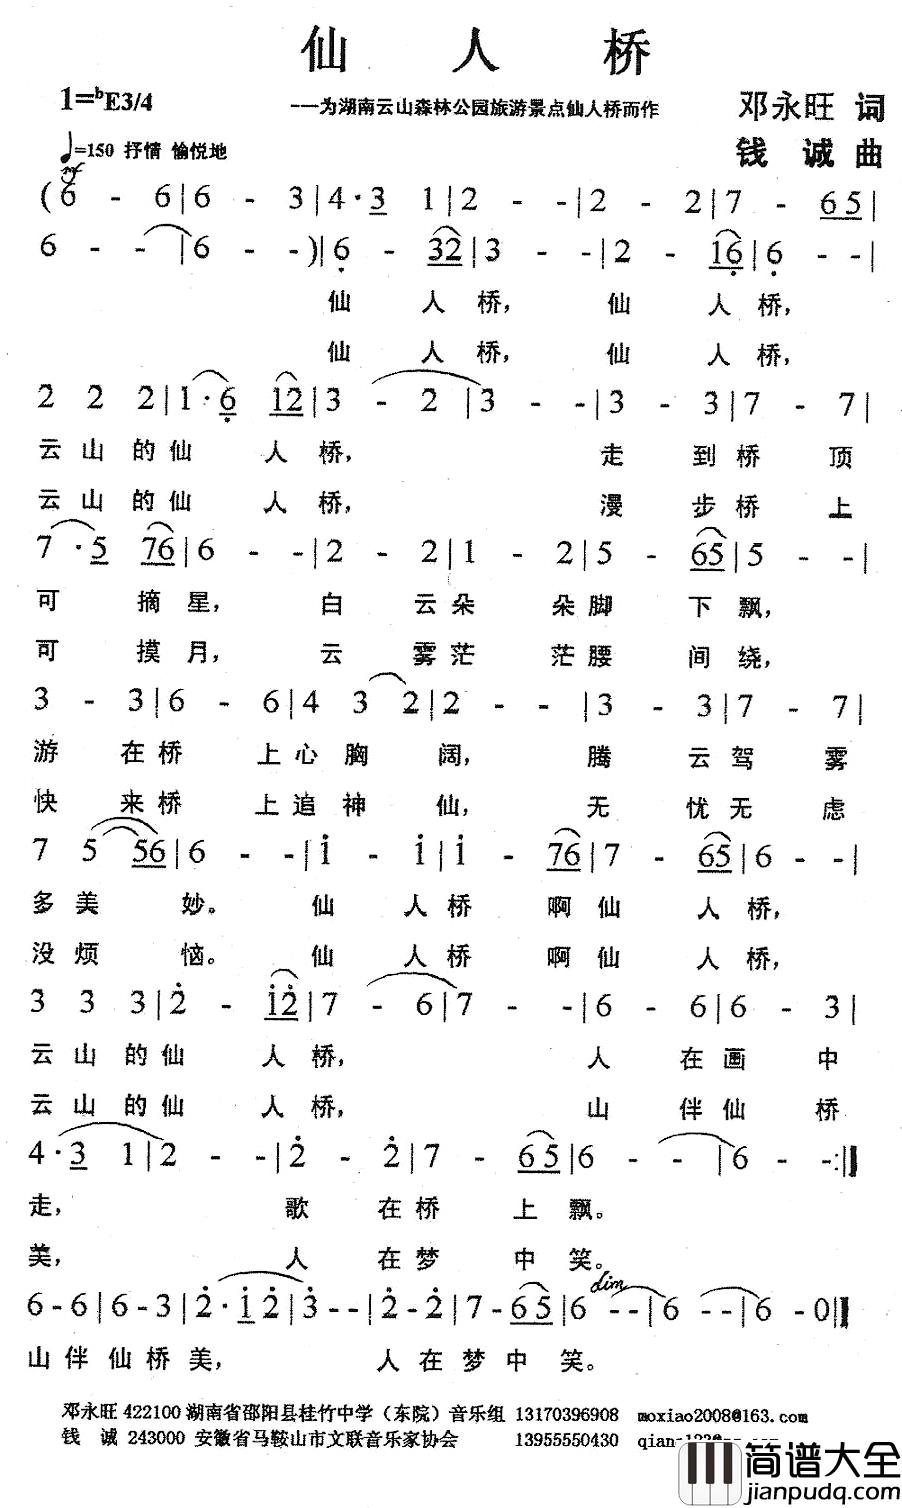 仙人桥
1=ᵇE3/4
———为湖南云山森林公园旅游景点仙人桥而作
邓永旺 词
♩=150 抒情 愉悦地
钱 诚 曲
(6 - 6|6 - 3|4·3 1|2 - -|2 - 2|7 - 65|
6 - -|6 - -)|6 - 32|3 - -|2 - 16|6 - -|
仙 人桥, 仙 人桥,
仙 人桥, 仙 人桥,
2 2 2|1·6 12|3 - 2|3 - -|3 - 3|7 - 7|
云山的仙 人桥, 走 到桥 顶
云山的仙 人桥, 漫 步桥 上
7·5 76|6 - -|2 - 2|1 - 2|5 - 65|5 - -|
可 摘星, 白 云朵 朵脚 下飘,
可 摸月, 云 雾茫 茫腰 间绕,
3 - 3|6 - 6|4 3 2|2 - -|3 - 3|7 - 7|
游 在桥 上心胸 阔, 腾 云驾 雾
快 来桥 上追神 仙, 无 忧无 虑
7 5 56|6 - -|i - i|i - 76|7 - 65|6 - -|
多美 妙。 仙 人桥 啊仙 人桥,
没烦 恼。 仙 人桥 啊仙 人桥,
3 3 3|2 - 12|7 - 6|7 - -|6 - 6|6 - 3|
云山的仙 人桥, 人 在画 中
云山的仙 人桥, 山 伴仙 桥
4·3 1|2 - -|2 - 2|7 - 65|6 - -|6 - -:||
走, 歌 在桥 上飘。
美, 人 在梦 中笑。
dim
6-6|6-3|2·1 2|3--|2-2|7-65|6--|6--|6-0||
山伴仙桥美, 人在梦中笑。
邓永旺 422100 湖南省邵阳县桂竹中学（东院）音乐组 13170396908 moxiao2008@163.com
钱 诚 243000 安徽省马鞍山市文联音乐家协会 13955550430
简谱大全
jianpudq.com